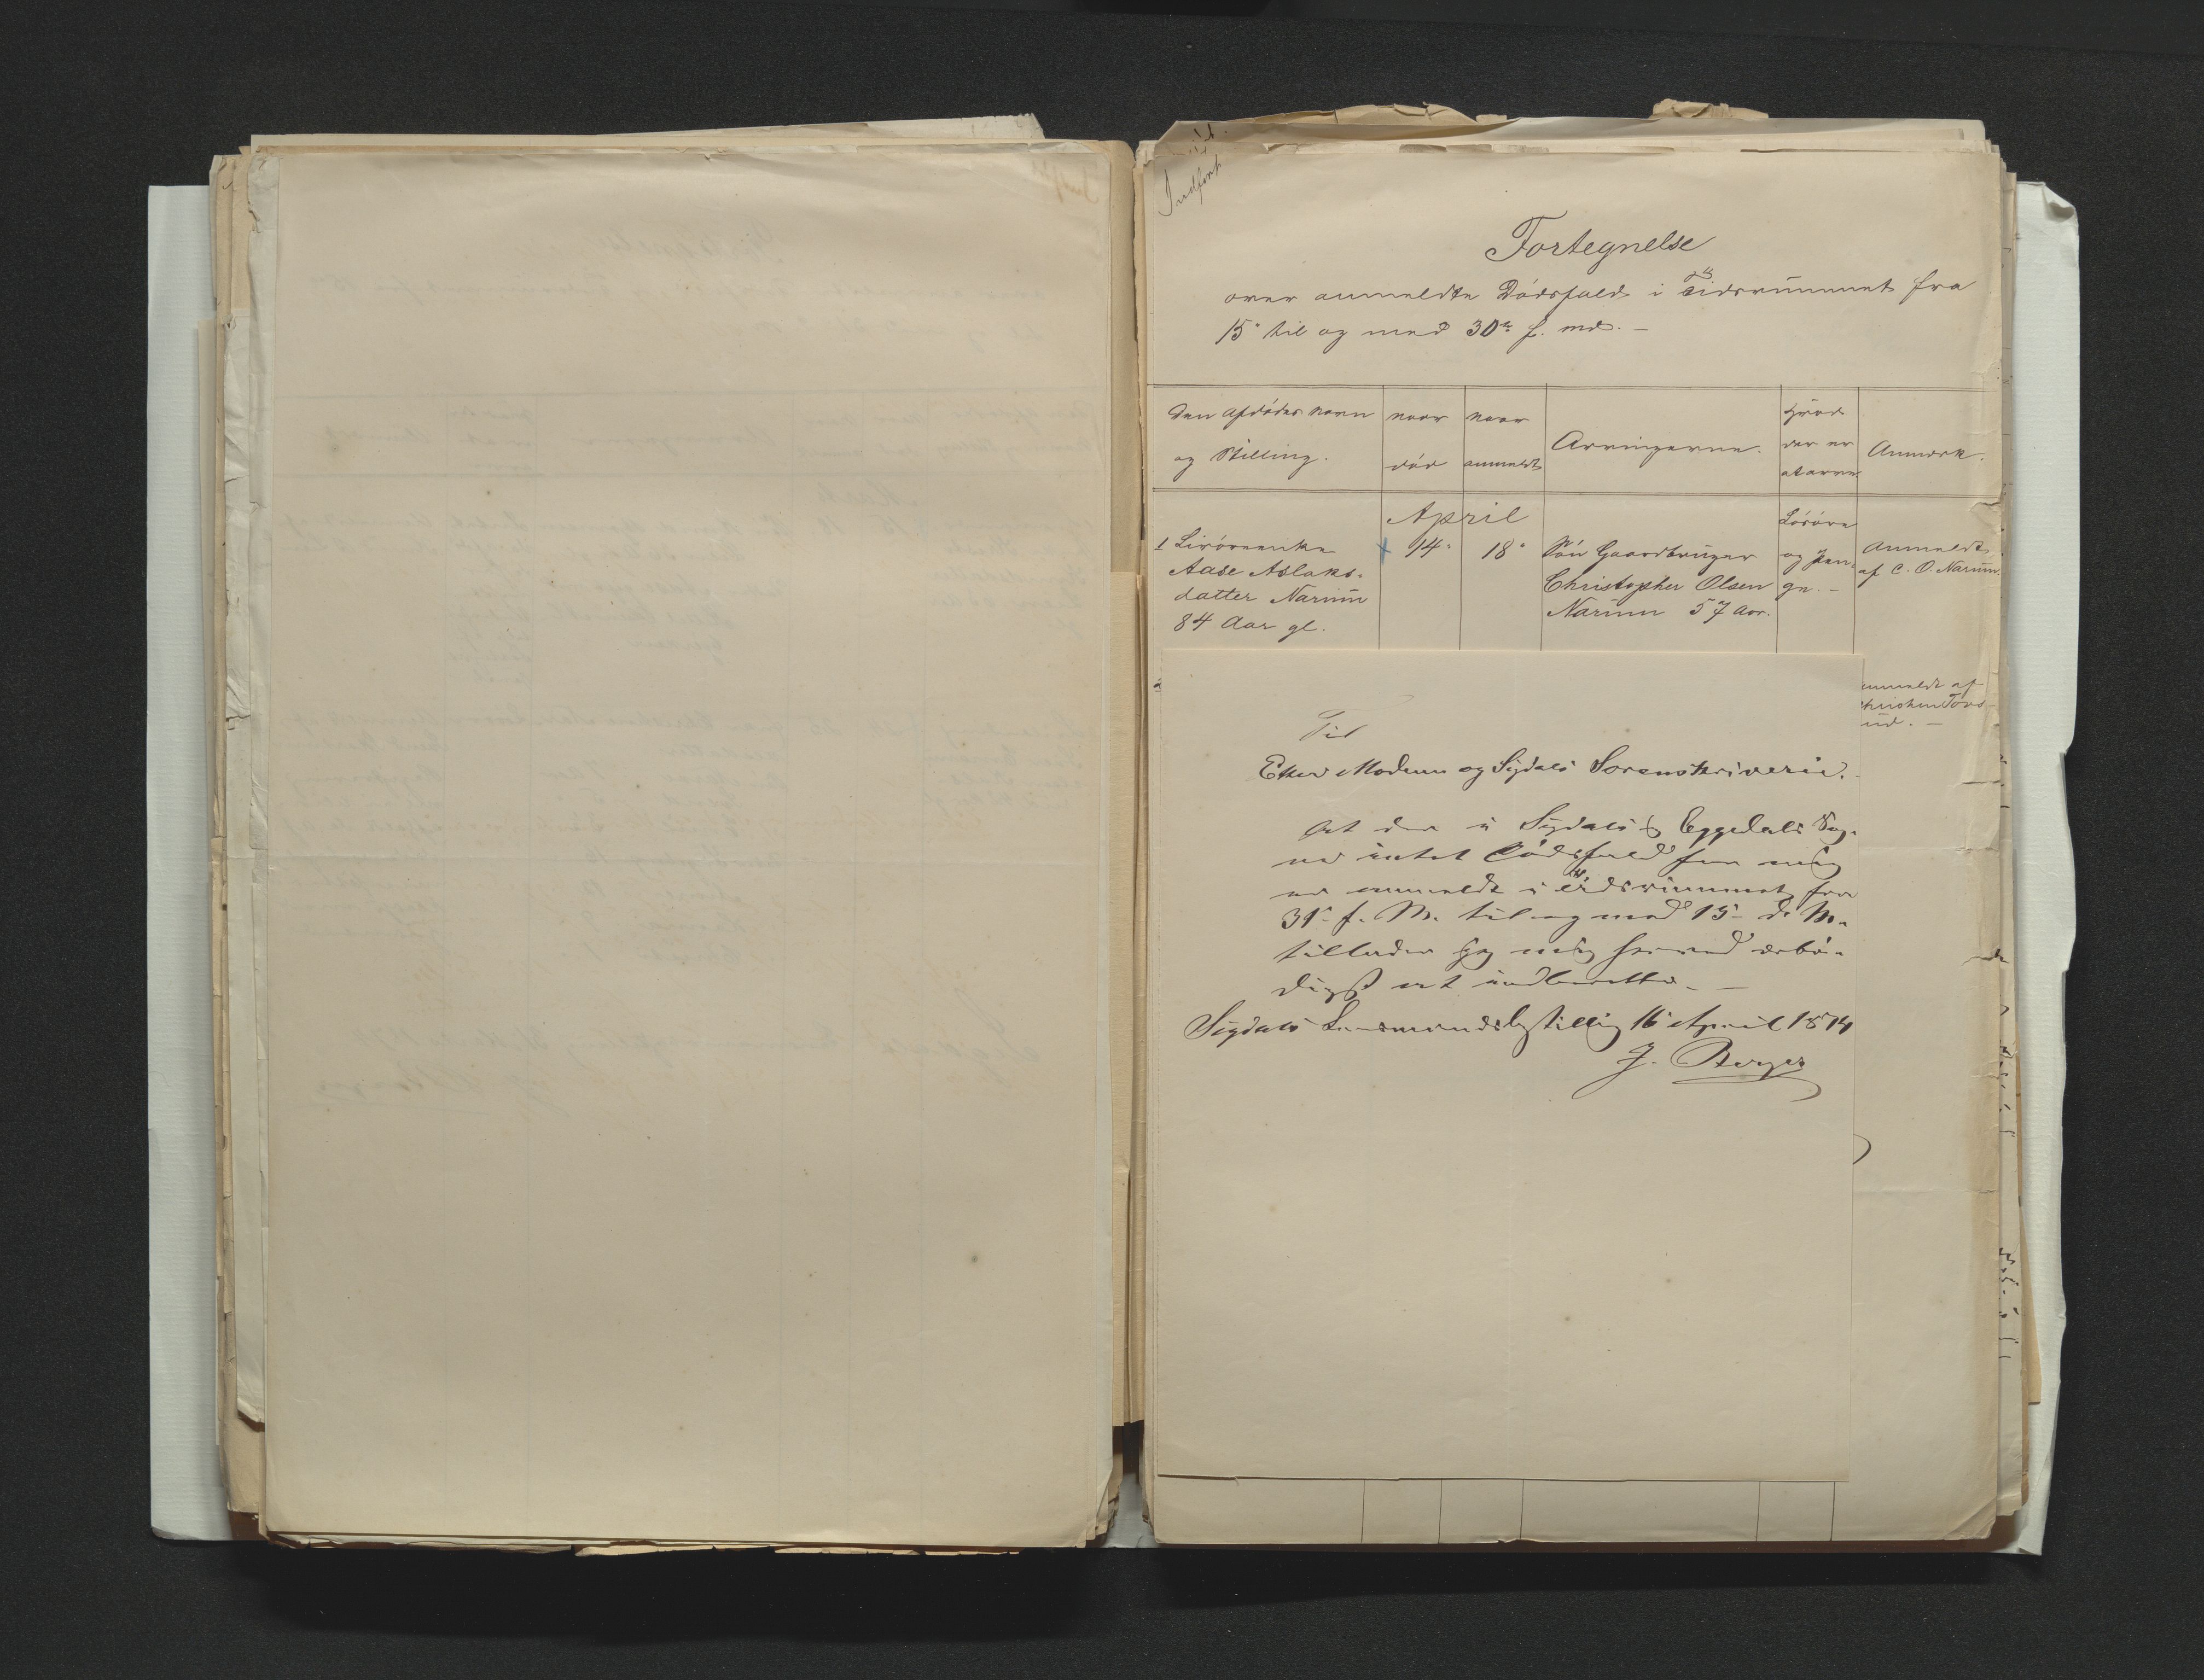 Indført
Fortegnelse
over anmeldte Dödsfald i Tidsrummet fra
15de til og med 30te f. md. –
Den afdödes navn
og Stilling.
naar
död
naar
anmeldt
Arvingerne.
Hvad
der er
at arve
Anmærk.
April
1 Livörenke
Aase Aslaks-
datter Narum
84 Aar gl.
14de
18de
Sön Gaardbruger
Christopher Olsen
Narum 57 Aar.
Lösöre
og Pen-
ge. –
Anmeldt
af C. O. Narum.
anmeldt af
Til
Eker Modum og Sigdals Sorenskriveri.
At der i Sigdals & Eggedals Sog-
ne intet Dödsfald for mig
er anmeldt i Tidsrummet fra
31te f. M. til og med 15de d. M.
tillader jeg mig herved ærbö-
digst at indberette. –
Sigdals Lensmandsbestilling 16de April 1874
J. Berger